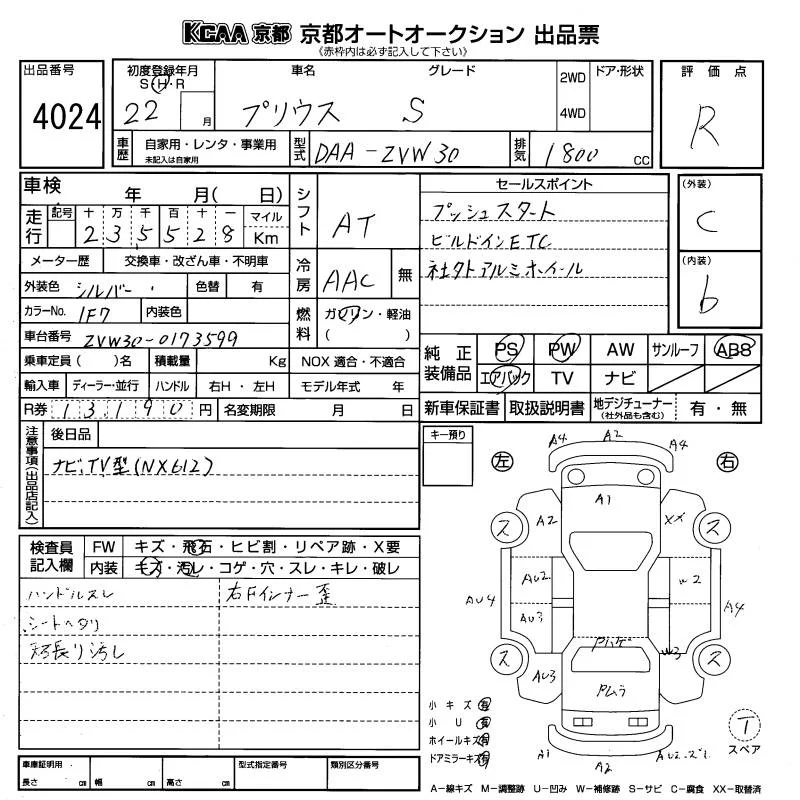 KCAA 京都 京都オートオークション 出品票
《赤枠内は必ず記入して下さい》
出品番号 4024
初度登録年月 S・H・R 22 月
車名 プリウス
グレード S
2WD
4WD
ドア・形状
評価点 R
車歴 自家用・レンタ・事業用
未記入は自家用
型式 DAA-ZVW30
排気 1800 CC
車検 年 月( 日)
走行 記号 十 万 千 百 十 一 マイル
235528 Km
シフト AT
セールスポイント
プッシュスタート
ビルドインETC
社外アルミホイール
(外装) C
(内装) b
メーター歴 交換車・改ざん車・不明車
冷房 AAC 無
外装色 シルバー 色替 有
カラーNo. 1F7 内装色
燃料 ガソリン・軽油
( )
車台番号 ZVW30-0173599
乗車定員( )名 積載量 Kg NOX 適合・不適合
純正装備品 PS PW AW サンルーフ ABS
エアバック TV ナビ
輸入車 ディーラー・並行 ハンドル 右H・左H モデル年式 年
R券 13190円 名変期限 月 日
新車保証書 取扱説明書 地デジチューナー(社外品も含む) 有・無
注意事項(出品店記入)
後日品
ナビ,TV型(NX612)
キー預り
左
右
A4 A2 A4
A1
A2 XX
ス ス
AU2 W2
AU4 A4
AU3
W3
ス ス
AU3
A1 A2
T
スペア
検査員記入欄
FW キズ・飛石・ヒビ割・リペア跡・X要
内装 キズ・汚レ・コゲ・穴・スレ・キレ・破レ
ハンドルスレ
右Fインナー歪
シートヘタリ
汚し
小キズ 有
小U 有
ホイールキズ 有
ドアミラーキズ 有
車庫証明用 長さ cm 幅 cm 高さ cm
型式指定番号
類別区分番号
A-線キズ M-調整跡 U-凹み W-補修跡 S-サビ C-腐食 XX-取替済